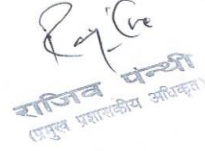 राजिव पंन्थी
(प्रमुख प्रशासकीय अधिकृत)